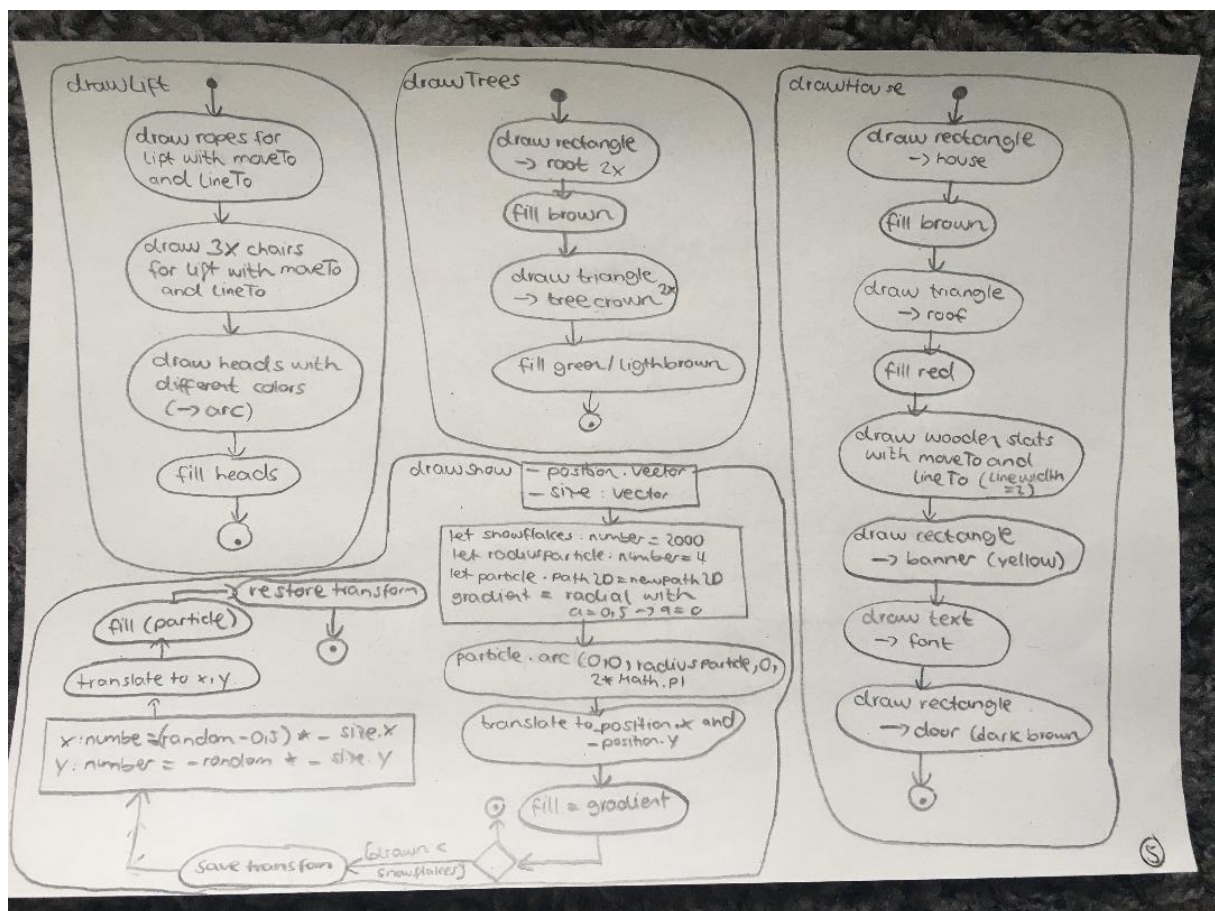 drawLift
draw ropes for
lift with moveTo
and lineTo
draw 3x chairs
for lift with moveTo
and lineTo
draw heads with
different colors
(-> arc)
fill heads
drawTrees
draw rectangle
-> root 2x
fill brown
draw triangle 2x
-> tree crown
fill green/ligthbrown
drawHouse
draw rectangle
-> house
fill brown
draw triangle
-> roof
fill red
draw wooden slats
with moveTo and
lineTo (linewidth
=2)
draw rectangle
-> banner (yellow)
draw text
-> font
draw rectangle
-> door (dark brown
drawSnow
- position: vector
- size: vector
let snowflakes: number = 2000
let radiusparticle: number = 4
let particle: path2D = newpath2D
gradient = radial with
a=0,5 -> a=0
particle.arc (0,0, radiusparticle, 0,
2* Math.PI
translate to_position.x and
- position.y
fill = gradient
[drawn <
snowflakes]
save transform
x: numbe =(random -0,5) * - size.x
y: number = - random * - size.y
translate to x,y.
fill (particle)
restore transform
5